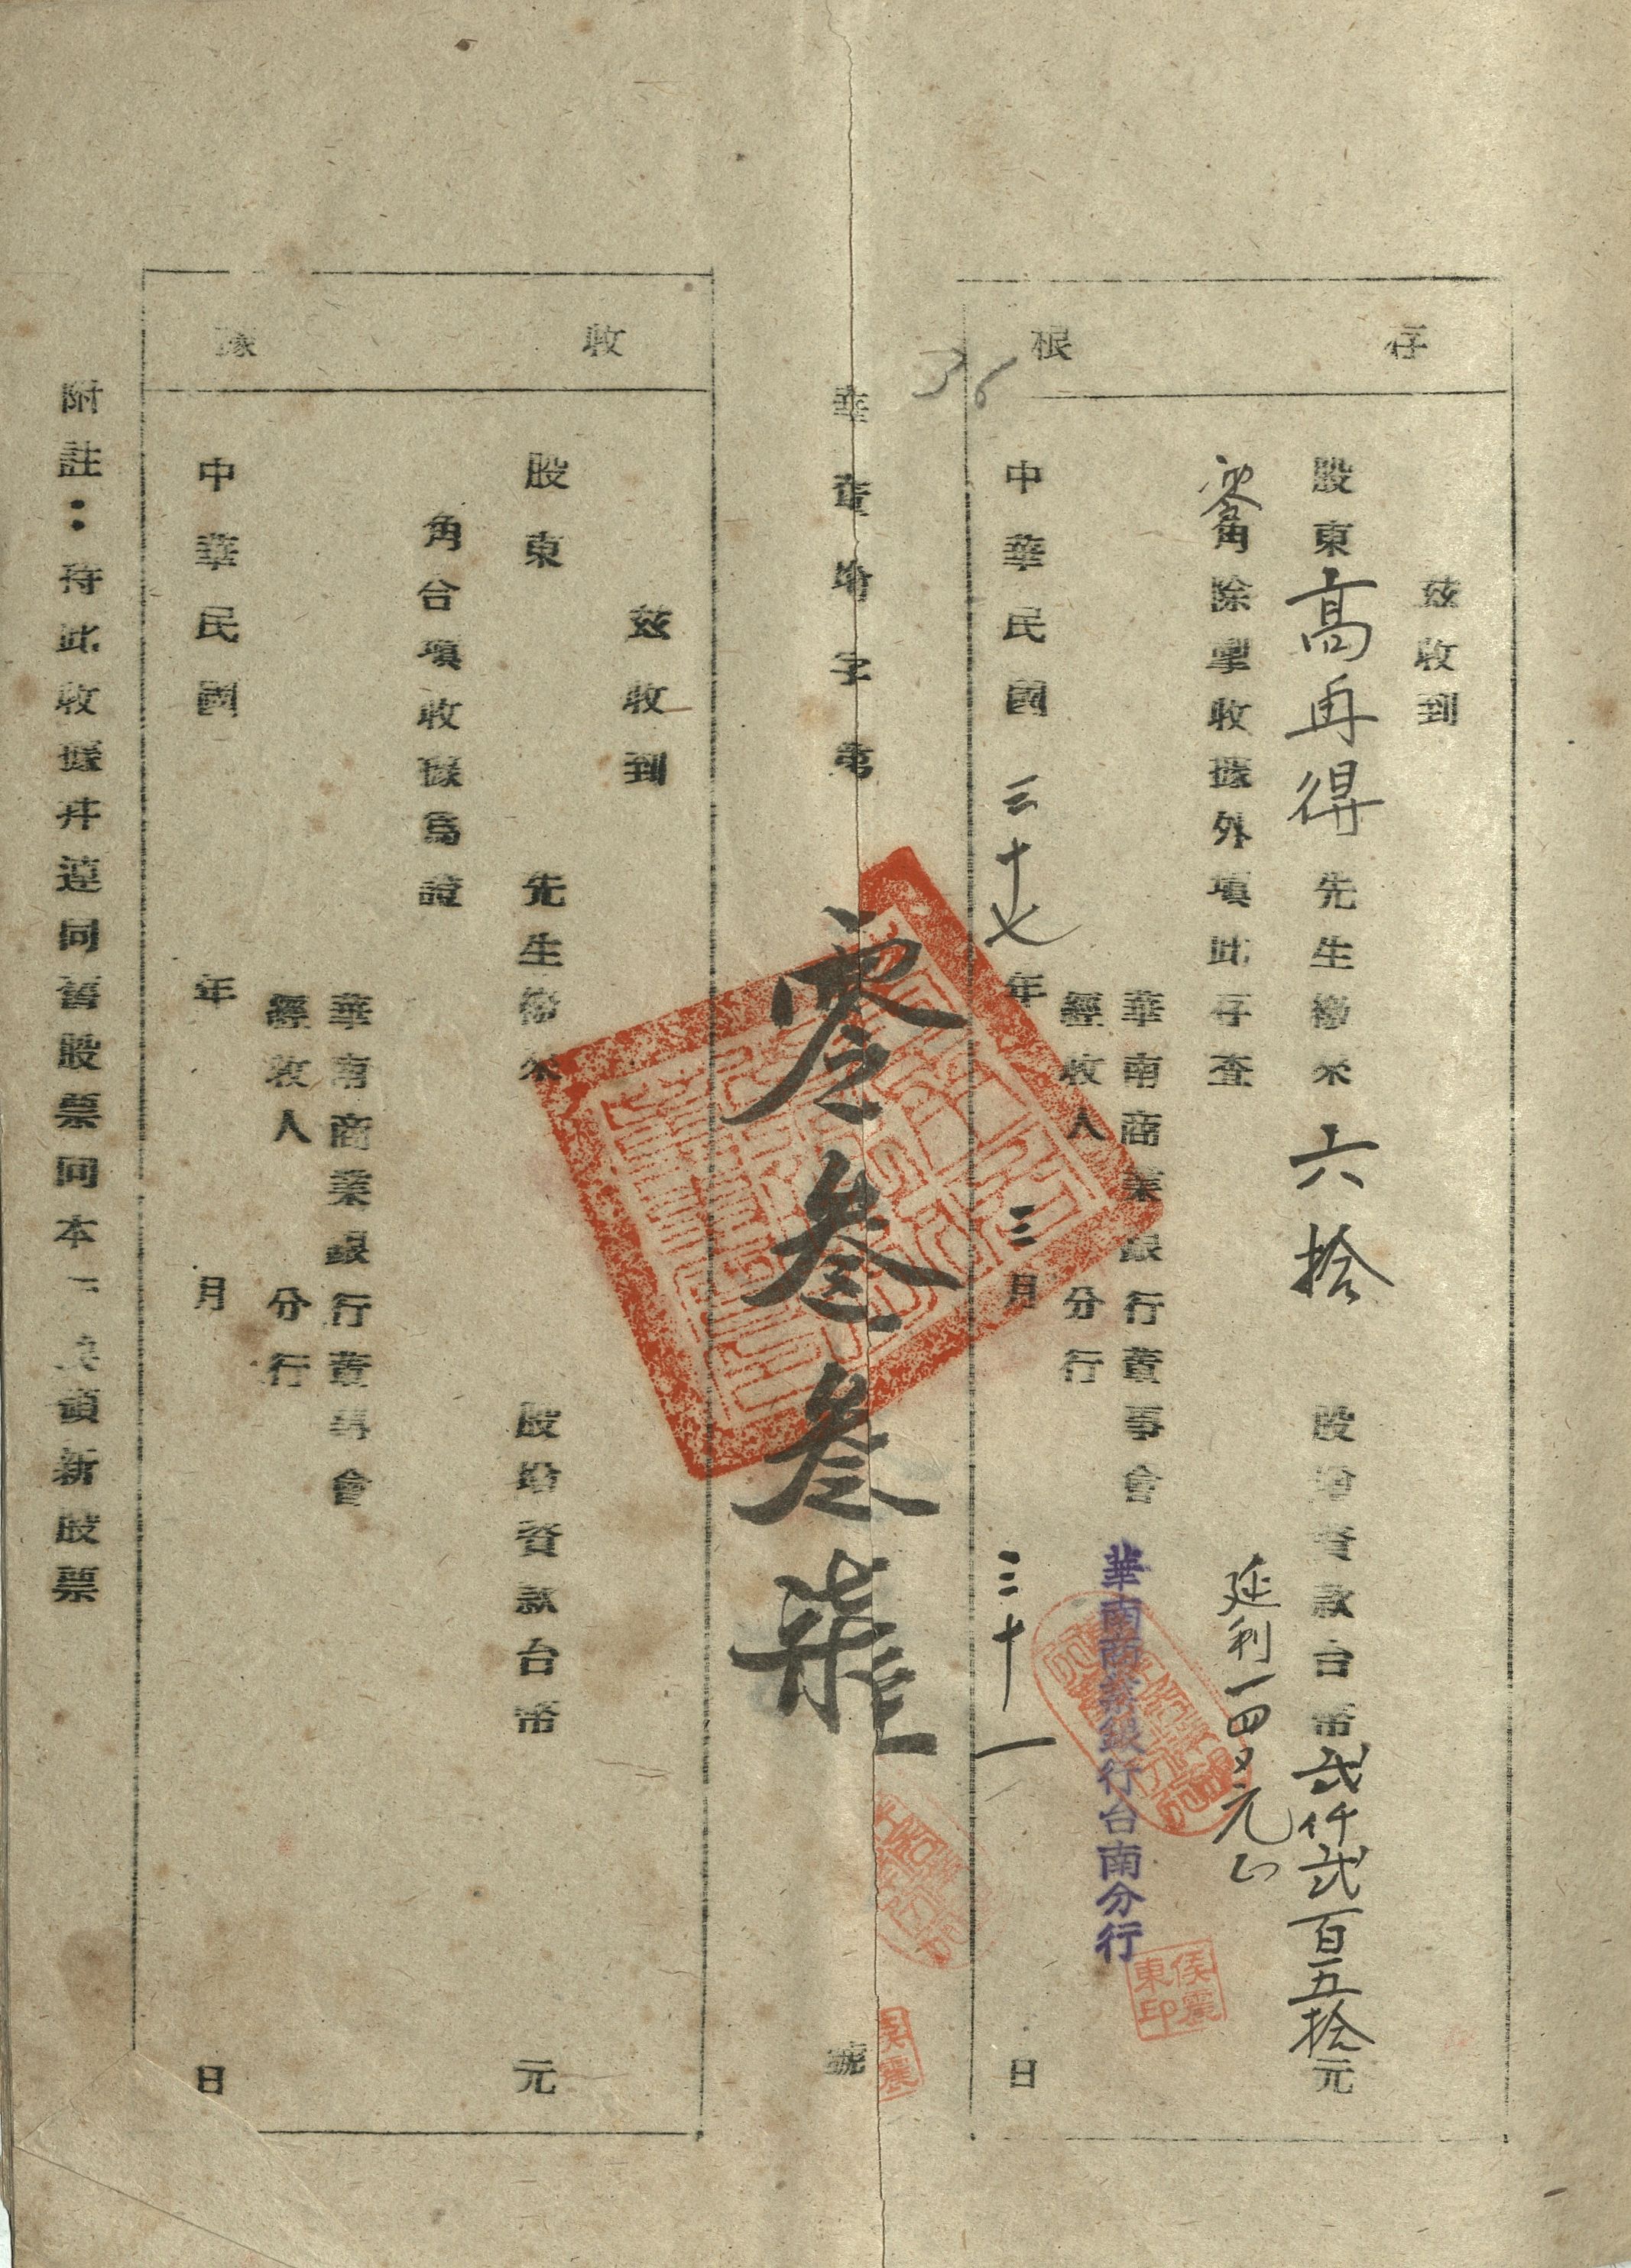 存根
茲收到
股東高再得先生繳來六拾股增資款台幣貳仟貳百五拾元
零角除掣收據外填此存查
延利一四〤元正
華南商業銀行董事會
華南商業銀行台南分行
經收人分行
侯震東印
中華民國三十七年三月三十一日
36
華董增字第零叁叁柒號
侯震
收據
茲收到
股東先生繳來股增資款台幣元
角合項收據為證
華南商業銀行董事會
經收人分行
中華民國年月日
附註：持此收據并連同舊股票同本換領新股票